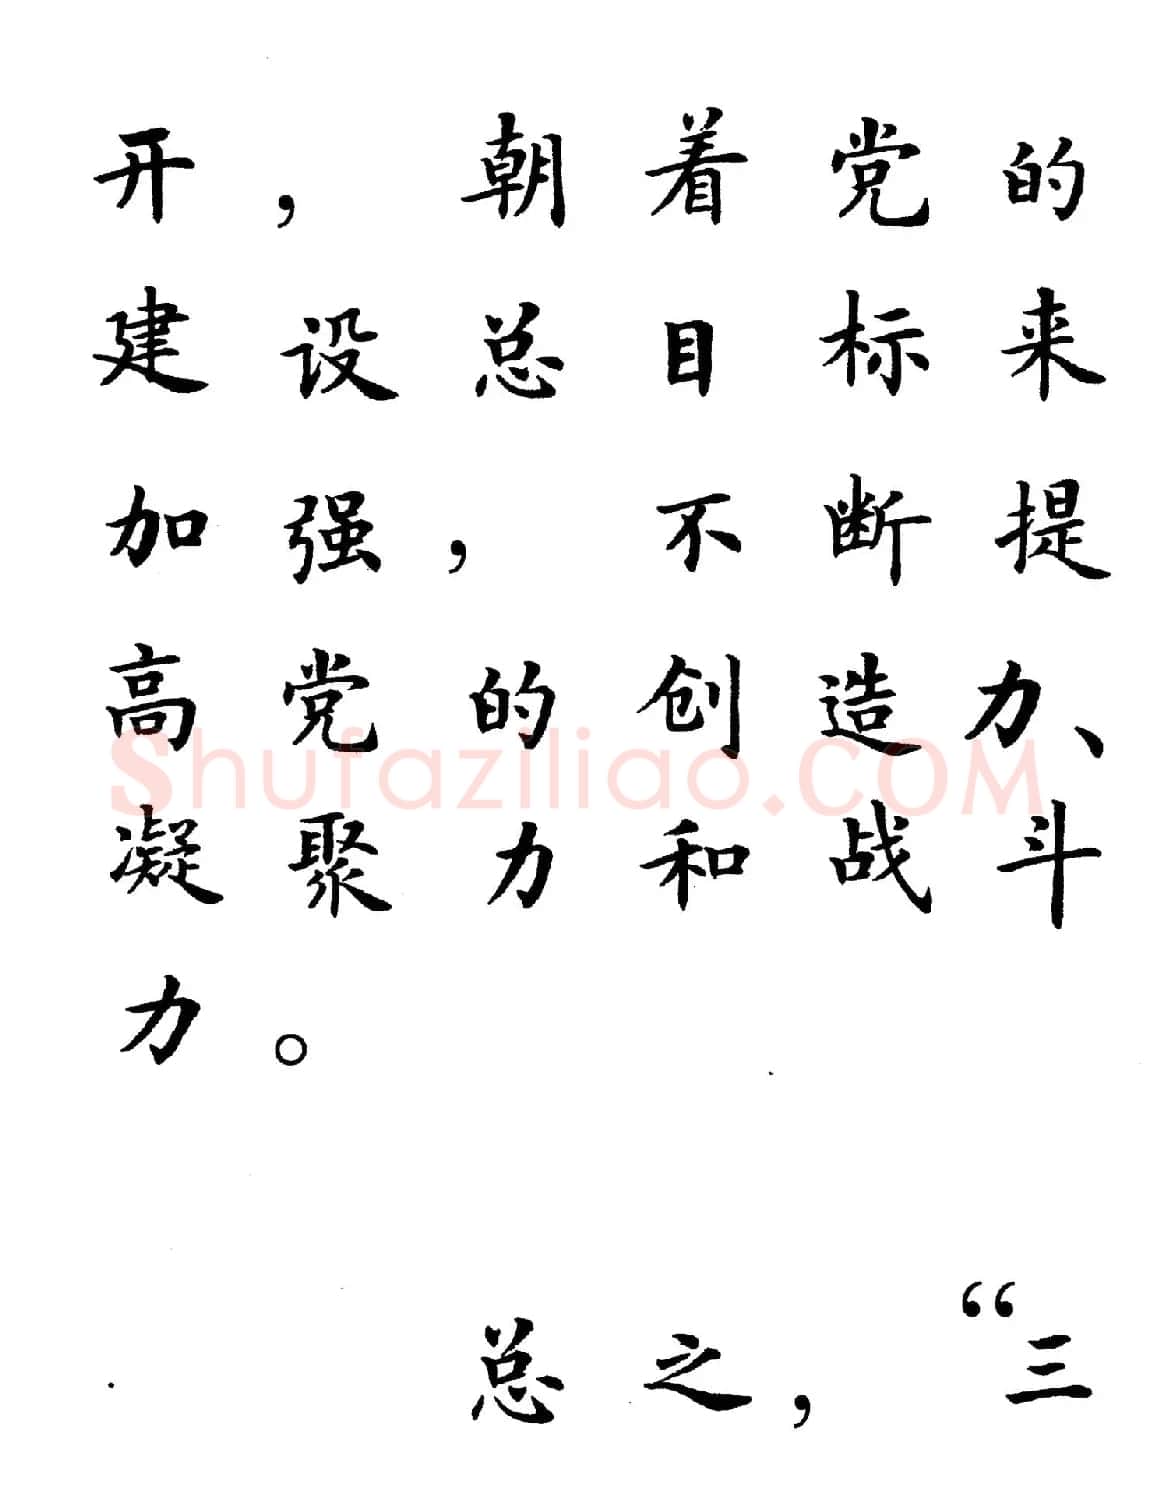 开，朝着党的
建设总目标来
加强，不断提
高党的创造力、
Shufaziliao.COM
凝聚力和战斗
力。
总之，“三